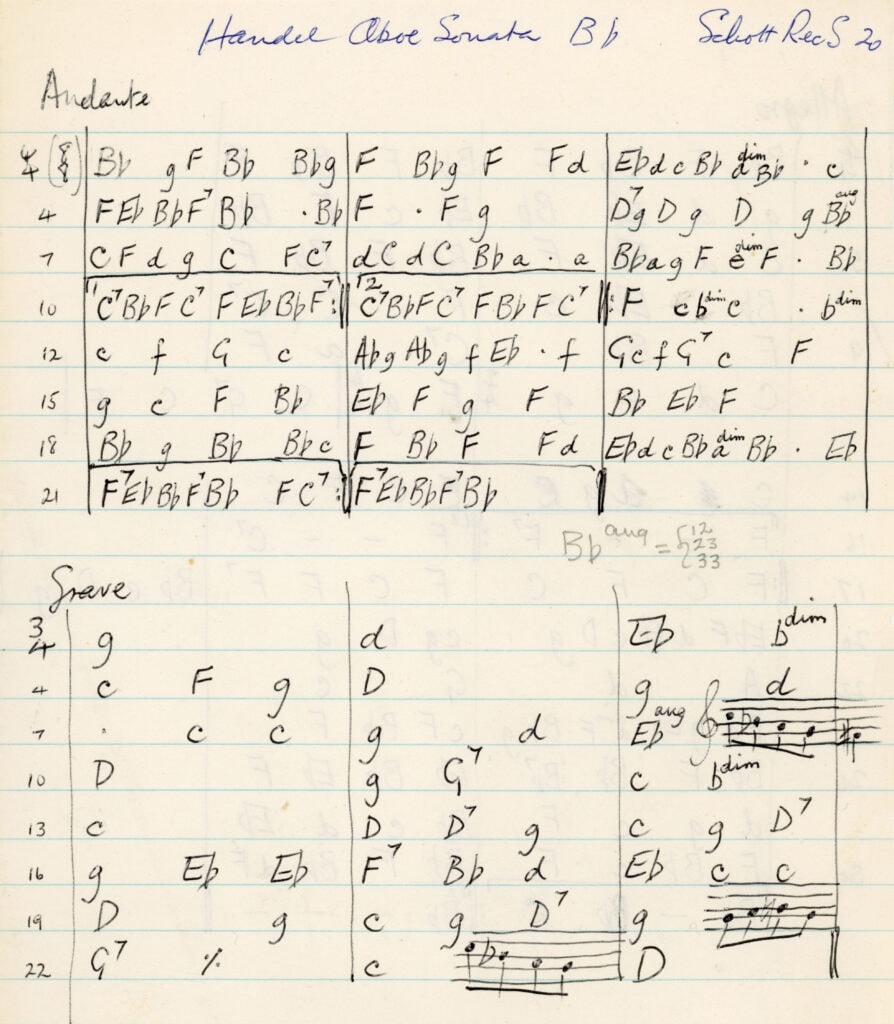 Handel Oboe Sonata B♭ Schott RecS 20
Andante
4/4 (8/8) | B♭ g F B♭ B♭ g | F B♭ g F F d | E♭ d c B♭ d dim B♭ · c
4 | F E♭ B♭ F7 B♭ · B♭ | F · F g | D7 g D g D g B♭ aug
7 | C F d g C F C7 | d C d C B♭ a · a | B♭ a g F e dim F · B♭
10 | 1 C7 B♭ F C7 F E♭ B♭ F7 :‖ 2 C7 B♭ F C7 F B♭ F C7 ‖: F c b dim c · b dim
12 | c f G c | A♭ g A♭ g f E♭ · f | G c f G7 c F
15 | g c F B♭ | E♭ F g F | B♭ E♭ F
18 | B♭ g B♭ B♭ c | F B♭ F F d | E♭ d c B♭ a dim B♭ · E♭
21 | F7 E♭ B♭ F7 B♭ F C7 :‖ F7 E♭ B♭ F7 B♭ ‖
B♭ aug = { 12 23 33
Grave
3/4 | g | d | E♭ b dim
4 | c F g | D | g d
7 | · c c | g d | E♭ aug
10 | D | g G7 | c b dim
13 | c | D D7 g | c g D7
16 | g E♭ E♭ | F7 B♭ d | E♭ c c
19 | D g | c g D7 | g
22 | G7 ٪ | c | D ‖